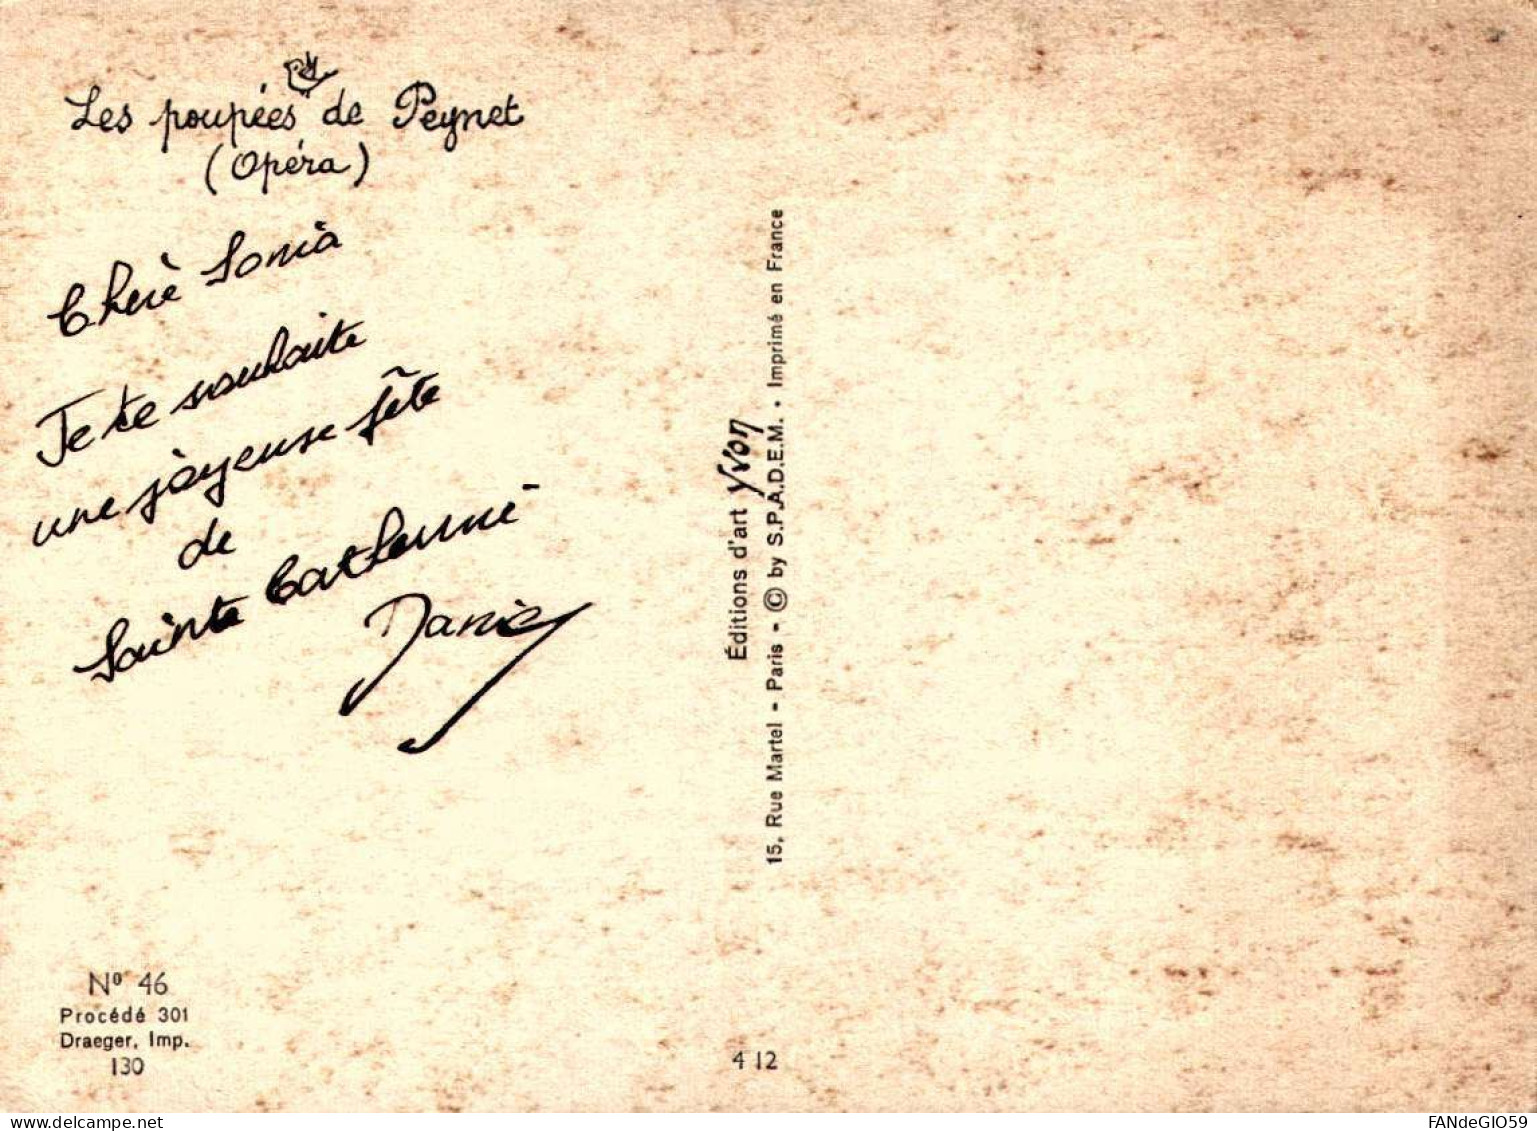 Les poupées de Peynet
(Opéra)
Cherè Sonia
Je te souhaite
une joyeuse fête
de
Sainte Catherine
Éditions d'art yvon
15, Rue Martel - Paris - © by S.P.A.D.E.M. - Imprimé en France
Nº 46
Procédé 301
Draeger, Imp.
130
4 12
FANdeGIO59